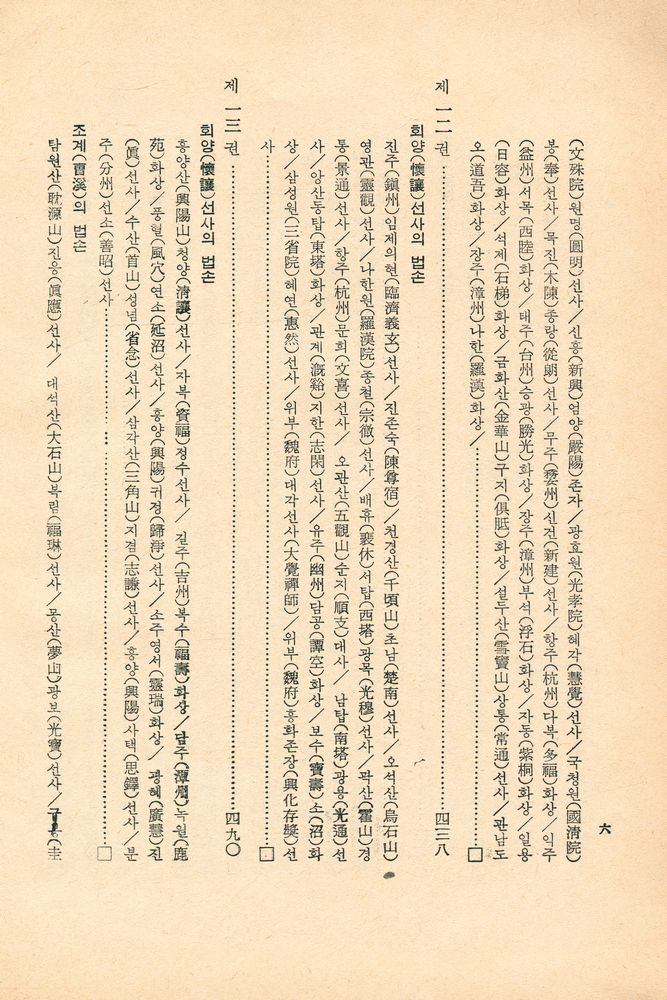 六
(文殊院)원명(圓明)선사／신흥(新興)엄양(嚴陽)존자／광효원(光孝院)혜각(慧覺)선사／국청원(國清院)
봉(奉)선사／목진(木陳)종랑(從朗)선사／무주(婺州)신건(新建)선사／항주(杭州)다복(多福)화상／익주
(益州)서목(西陸)화상／태주(台州)승광(勝光)화상／장주(漳州)부석(浮石)화상／자동(紫桐)화상／일용
(日容)화상／석제(石梯)화상／금화산(金華山)구지(俱胝)화상／설두산(雪竇山)상통(常通)선사／관남도
오(道吾)화상／장주(漳州)나한(羅漢)화상／……□
제 一二 권……四三八
회양(懷讓)선사의 법손
진주(鎮州)임제의현(臨濟義玄)선사／진존숙(陳尊宿)／천경산(千頃山)초남(楚南)선사／오석산(烏石山)
영관(靈觀)선사／나한원(羅漢院)종철(宗徹)선사／배휴(裵休)서탑(西塔)광목(光穆)선사／곽산(霍山)경
통(景通)선사／항주(杭州)문희(文喜)선사／ 오관산(五觀山)순지(順支)대사／ 남탑(南塔)광용(光通)선
사／앙산동탑(東塔)화상／관계(漑谿)지한(志閑)선사／유주(幽州)담공(譚空)화상／보수(寶壽)소(沼)화
상／삼성원(三省院)혜연(惠然)선사／위부(魏府)대각선사(大覺禪師)／위부(魏府)흥화존장(興化存奬)선
사……□
제 一三 권……四九〇
회양(懷讓)선사의 법손
흥양산(興陽山)청양(清讓)선사／자복(資福)정수선사／ 길주(吉州)복수(福壽)화상／담주(潭州)녹원(鹿
苑)화상／풍혈(風穴)연소(延沼)선사／흥양(興陽)귀정(歸淨)선사／소주영서(靈瑞)화상／ 광혜(廣慧)진
(眞)선사／수산(首山)성념(省念)선사／삼각산(三角山)지겸(志謙)선사／흥양(興陽)사탁(思鐸)선사／분
주(分州)선소(善昭)선사……□
조계(曹溪)의 법손
탐원산(耽源山)진응(眞應)선사／ 대석산(大石山)복림(福琳)선사／몽산(夢山)광보(光寶)선사／규봉(圭